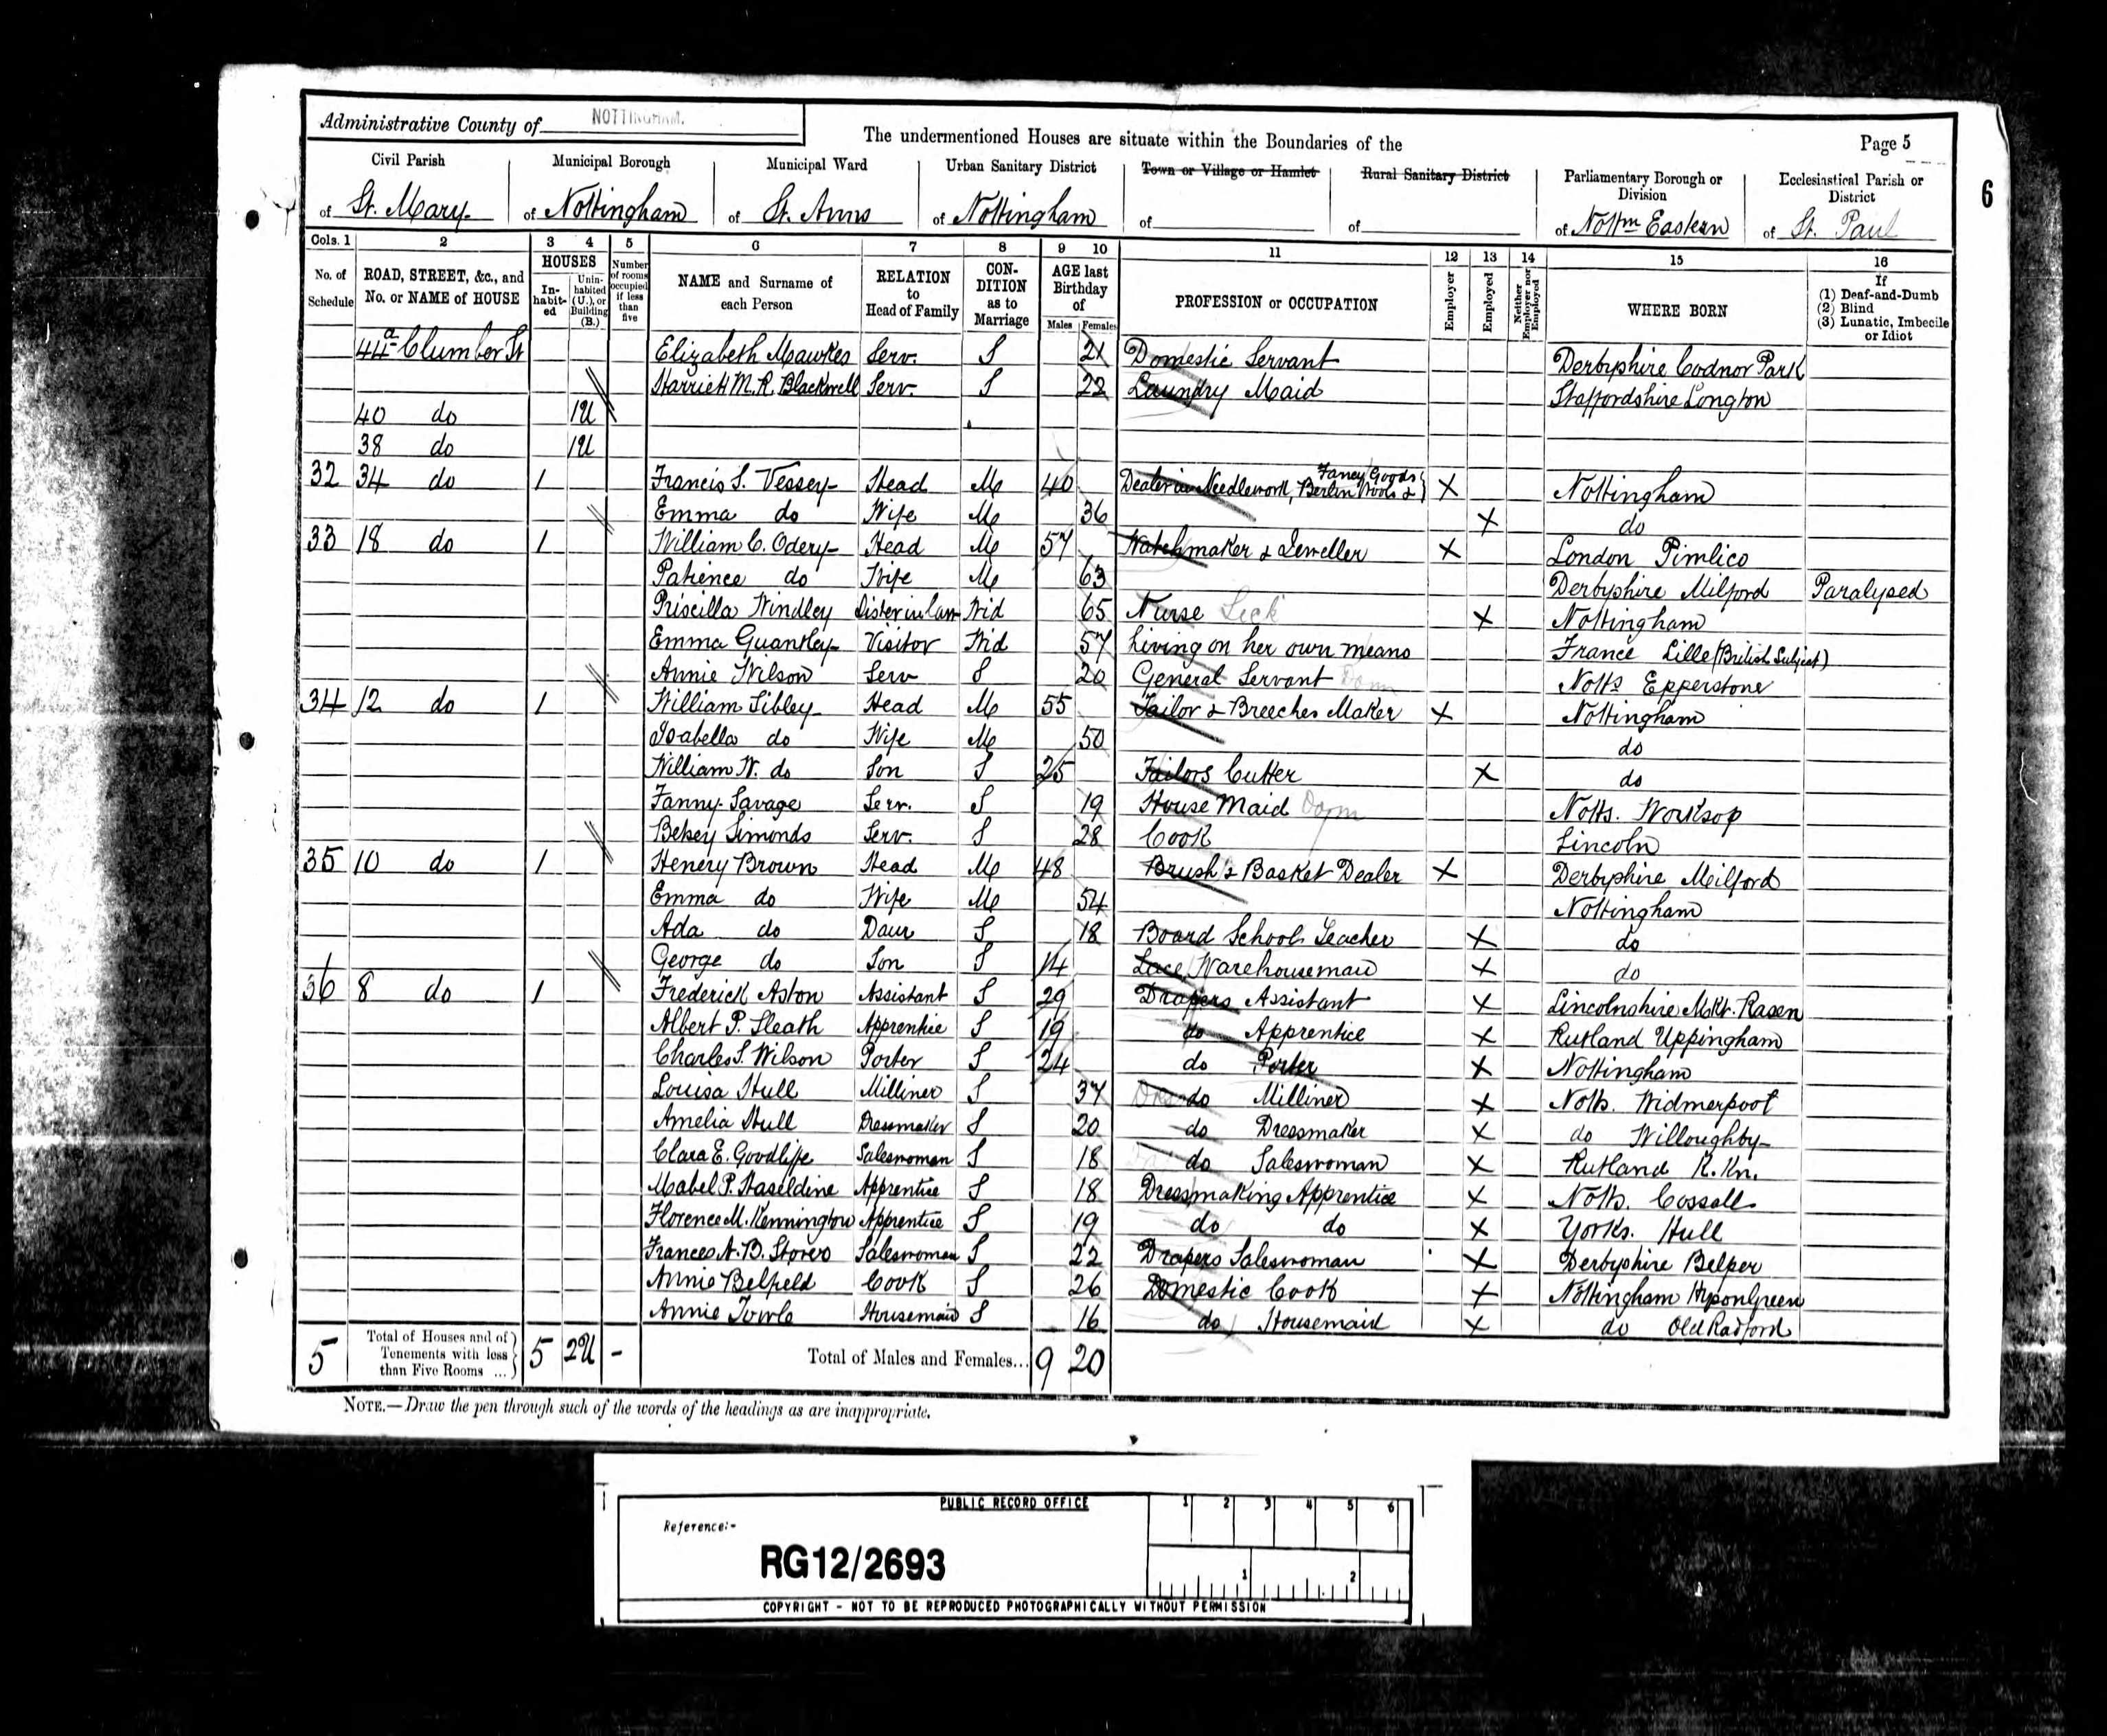 Administrative County of NOTTINGHAM.
The undermentioned Houses are situate within the Boundaries of the
Page 5
6
Civil Parish Municipal Borough Municipal Ward Urban Sanitary District Town or Village or Hamlet Rural Sanitary District Parliamentary Borough or Division Ecclesiastical Parish or District
of St. Mary of Nottingham of St. Anns of Nottingham of of of Nottm Eastern of St. Paul
Cols. 1 2 3 4 5 6 7 8 9 10 11 12 13 14 15 16
No. of Schedule ROAD, STREET, &c., and No. or NAME of HOUSE HOUSES In-habit-ed Unin-habited (U.), or Building (B.) Number of rooms occupied if less than five NAME and Surname of each Person RELATION to Head of Family CON-DITION as to Marriage AGE last Birthday of Males Females PROFESSION or OCCUPATION Employer Employed Neither Employer nor Employed WHERE BORN If (1) Deaf-and-Dumb (2) Blind (3) Lunatic, Imbecile or Idiot
44a Clumber St Elizabeth Mawkes Serv. S 21 Domestic Servant Derbyshire Codnor Park
Harriett M. R. Blackwell Serv. S 22 Laundry Maid Staffordshire Longton
40 do 1U
38 do 1U
32 34 do 1 Francis S. Vessey Head M 40 Dealer in Needlework, Berlin Wools & Fancy Goods X Nottingham
Emma do Wife M 36 X do
33 18 do 1 William C. Odery Head M 57 Watchmaker & Jeweller X London Pimlico
Patience do Wife M 63 Derbyshire Milford Paralysed
Priscilla Windley Sister in law Wid 65 Nurse Sick X Nottingham
Emma Guankley Visitor Wid 57 Living on her own means France Lille (British Subject)
Annie Wilson Serv S 20 General Servant Dom Notts Epperstone
34 12 do 1 William Sibley Head M 55 Tailor & Breeches Maker X Nottingham
Isabella do Wife M 50 do
William W. do Son S 25 Tailors Cutter X do
Fanny Savage Serv. S 19 House Maid Dom Notts. Worksop
Betsey Simonds Serv. S 28 Cook Lincoln
35 10 do 1 Henery Brown Head M 48 Brush & Basket Dealer X Derbyshire Milford
Emma do Wife M 54 Nottingham
Ada do Daur S 18 Board School Teacher X do
George do Son S 14 Lace Warehouseman X do
36 8 do 1 Frederick Aston Assistant S 29 Drapers Assistant X Lincolnshire Mkt. Rasen
Albert P. Sleath Apprentice S 19 do Apprentice X Rutland Uppingham
Charles S. Wilson Porter S 24 do Porter X Nottingham
Louisa Hull Milliner S 37 do Milliner X Notts. Widmerpool
Amelia Hull Dressmaker S 20 do Dressmaker X do Willoughby
Clara E. Goodliffe Saleswoman S 18 do Saleswoman X Rutland N. Kn.
Mabel P. Haseldine Apprentice S 18 Dressmaking Apprentice X Notts. Cossall
Florence M. Kennington Apprentice S 19 do do X Yorks. Hull
Frances A. B. Storer Saleswoman S 22 Drapers Saleswoman X Derbyshire Belper
Annie Belfield Cook S 26 Domestic Cook X Nottingham Hyson Green
Annie Towle Housemaid S 16 do Housemaid X do Old Radford
5 Total of Houses and of Tenements with less than Five Rooms ... 5 2U - Total of Males and Females... 9 20
NOTE.—Draw the pen through such of the words of the headings as are inappropriate.
PUBLIC RECORD OFFICE
1 2 3 4 5 6
Reference:-
RG12/2693
1 2
COPYRIGHT - NOT TO BE REPRODUCED PHOTOGRAPHICALLY WITHOUT PERMISSION